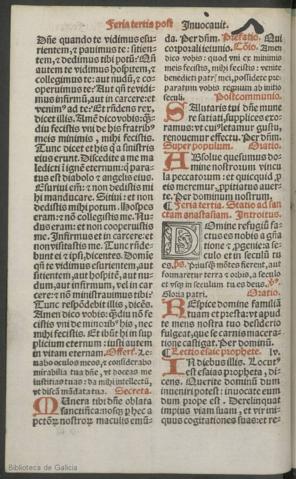 Feria tertis post Inuocauit.
Dñe quando te vidimus esu
rientem, ⁊ pauimus te: sitien-
tem, ⁊ dedimus tibi potũ? Qñ
autem te vidimus hospitem, ⁊
collegimus te: aut nudũ, ⁊ co
operuimus te? Aut qñ te vidi-
mus infirmũ, aut in carcere: ⁊
venimꝰ ad te? Et rñdens rex,
dicet illis. Amẽ dico vobis: q̃ʒ
diu fecistis vni de his fratribꝰ
meis minimis, mihi fecistis.
Tunc dicet et his q̃ a sinistris
eius erunt. Discedite a me ma
ledicti ĩ ignẽ eternum: q̃ para-
tus est diabolo ⁊ angelis eius.
Esuriui em̃: ⁊ non dedistis mi
hi manducare. Sitiui: et non
dedistis mihi potum. Hospes
eram: ⁊ nõ collegistis me. Nu-
dus eram: et non cooperuistis
me. Infirmus et in carcere: et
non visitastis me. Tunc rñde-
bunt ei ⁊ ipsi, dicentes. Domie
qñ te vidimus esurientem, aut
sitientem, aut hospitẽ, aut nu-
dum, aut infirmum, vel in car-
cere: ⁊ nõ ministrauimus tibi?
Tunc respõdebit illis, dicẽs.
Amen dico vobis: q̃diu nõ fe
cistis vni de minoribꝰ his, nec
mihi fecistis. Et ibũt hi in sup
plicium eternum: iusti autem
in vitam eternam. Offert̃. Le-
uabo oculos meos, ⁊ considerabo
mirabilia tua dñe, vt doceas me
iustitias tuas: da mihi intellectũ,
vt discã mãdata tua. Secreta.
Munera tibi dñe oblata
sanctifica: nosq̃ʒ p hec a
pctõꝝ nostroꝝ maculis emũ-
da. Per dñm. Prefatio. Qui
corporali ieiunio. Cõio. Amen
dico vobis: quod vni ex minimis
meis fecistis, mihi fecistis: venite
benedicti patrꝭ mei, possidete pre-
paratum vobis regnum ab initio
seculi. Postcommunio.
Salutaris tui dñe mune
re satiati, supplices exo-
ramus: vt cuiꝰ letamur gustu,
renouemur effectu. Per dñm.
Super populum. Oratio.
Absolue quesumus do-
mine nostrorum vincu
la peccatorum: et quicquid ꝓ
eis meremur, ꝓpitiatus auer-
te. Per dominum nostrum.
¶ Feria tertia. Statio ad san
ctam anastasiam. Introitus.
Domine refugiũ fa-
ctus es nobis a gña
tione ⁊ ꝓgenie: a se
culo et in seculũ tu
es. ps. Priusq̃ mõtes fierent, aut
formaretur terra ⁊ orbis, a seculo
et vsq̃ in seculum tu es deus. ℣.
Gloria patri. Oratio.
Respice domine familiã
tuam et presta: vt apud
te mens nostra tuo desiderio
fulgeat, que se carnis macera-
tione castigat. Per dominũ.
¶ Lectio esaie prophete. lv.
In diebus illis. Locutꝰ
est esaias propheta, di-
cens. Querite dominũ dum
inueniri potest: inuocate eum
dum prope est. Derelinquat
impius viam suam, et vir ini-
quus cogitationes suas: et re-
Biblioteca de Galicia